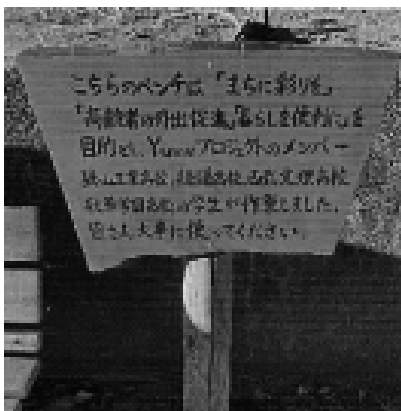 こちらのベンチは「まちに彩りを」
「高齢者の外出促進」「暮らしを便利に」を
目的とし、プロジェクトのメンバー
狭山工業高校、高校、西武文理高校
の学生が作製しました。
皆さん大事に使ってください。